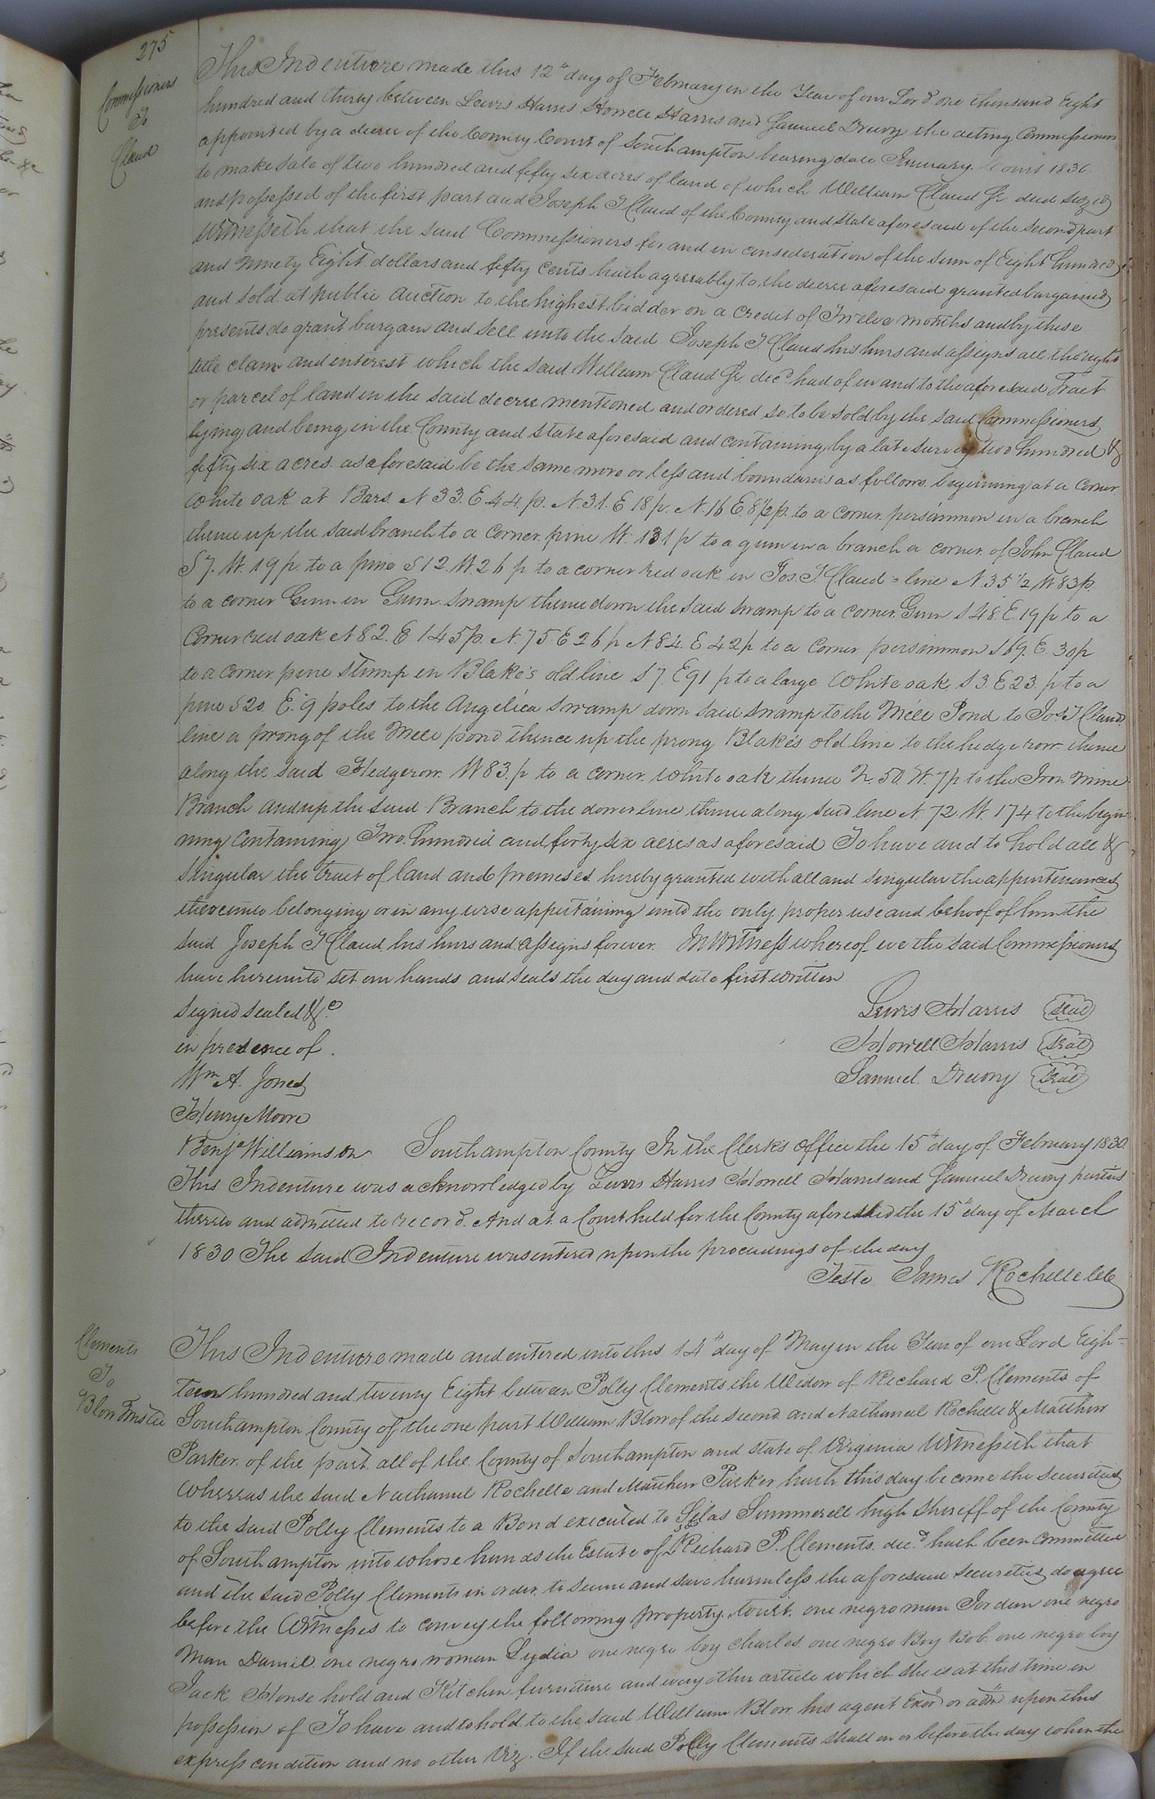 275
Commissioners
To
Claud
This Indenture made this 12th day of February in the Year of our Lord one thousand Eight
hundred and thirty between Lewis Harris Howell Harris and Samuel Drewry the acting Commissioners
appointed by a decree of the County Court of Southampton bearing date January Court 1830
to make sale of two hundred and fifty six acres of land of which William Claud Jr decd seized
and possessed of the first part and Joseph T Claud of the County and State aforesaid of the second part
Witnesseth that the said Commissioners for and in consideration of the sum of Eight hundred
and ninety Eight dollars and fifty cents hath agreeably to the decree aforesaid granted bargained
and sold at public auction to the highest bidder on a credit of Twelve months and by these
presents do grant bargain and sell unto the said Joseph T Claud his hiers and assigns all the right
title claim and enterest which the said William Claud Jr decd had of in and to the aforesaid Tract
or parcel of land in the said decree mentioned and ordered so to be sold by the said Commissioners
lying and being in the County and State aforesaid and containing by a late survey two hundred &
fifty six acres as aforesaid be the same more or less and boundaris as follows beginning at a corner
White oak at Bars N 33. E 44 p. N. 31. E 18 p. N. 16 E 8½ p. to a corner persimmon in a branch
thence up the said branch to a corner pine W. 131 p to a gum in a branch a corner of John Claud
S 7. W. 19 p. to a pine S 12. W. 26 p to a corner red oak in Jos. T. Claud's line N. 35½ W 83 p.
to a corner Gum in Gum Swamp thence down the said swamp to a corner Gum S 48. E. 19 p to a
Corner red oak N 82. E 145 p. N. 75 E 26 p N 84. E 42 p to a corner persimmon S 69. E. 30 p
to a corner pine stump in Blake's old line S 7. E 91 p to a large White oak S 3. E 23. p to a
pine S 20. E. 9 poles to the Angelica Swamp down said swamp to the Mill Pond to Jos T Claud
line a prong of the Mill pond thence up the prong Blake's old line to the hedge row thence
along the said Hedgerow W 83. p to a corner White oak thence N 50 W 7 p to the Iron Mine
Branch and up the said Branch to the dower line thence along said line N 72. W. 174 to the begin
ning Containing Two hundred and forty six acres as aforesaid To have and to hold all &
Singular the tract of land and premises hereby granted with all and singular the appurtenances
thereunto belonging or in any wise appertaining unto the only proper use and behoof of him the
said Joseph T Claud his hiers and assigns forever. In Witness whereof we the said Commissioners
have hereunto set our hands and seals the day and date first written
Signed sealed &c Lewis Harris Seal
in presence of. Howell Harris Seal
Wm A. Jones Samuel Drewry Seal
Henry Moore
Benja Williamson Southampton County In the Clerks office the 15th day of February 1830
This Indenture was acknowledged by Lewis Harris Howell Harris and Samuel Drewry parties
thereto and admitted to record. And at a Court held for the County aforesaid the 15th day of March
1830 The said Indenture was entered upon the proceedings of the day
Teste James Rochelle Clk
Clements
To
Blow Trustee
This Indenture made and entered into this 14th day of May in the Year of our Lord Eigh-
teen hundred and twenty Eight between Polly Clements the Widow of Richard P. Clements of
Southampton County of the one part William Blow of the second and Nathaniel Rochelle & Matthew
Parker of the part all of the County of Southampton and State of Virginia Witnesseth that
Whereas the said Nathaniel Rochelle and Matthew Parker hath this day become the securities
to the said Polly Clements to a Bond executed to Silas Summerell high Sheriff of the County
of Southampton into whose hands the Estate of Richard P. Clements decd hath been committed
and the said Polly Clements in order to secure and save harmless the aforesaid securities do agree
before the Witnesses to convey the following property to wit. one negro man Jordan one negro
Man Daniel one negro woman Lydia one negro boy Charles one negro Boy Bob one negro boy
Jack House hold and Kitchen furniture and every other article which she is at this time in
possession of To have and to hold to the said William Blow his agent Exor or adm upon this
express condition and no other Viz. If the said Polly Clements shall on or before the day when the